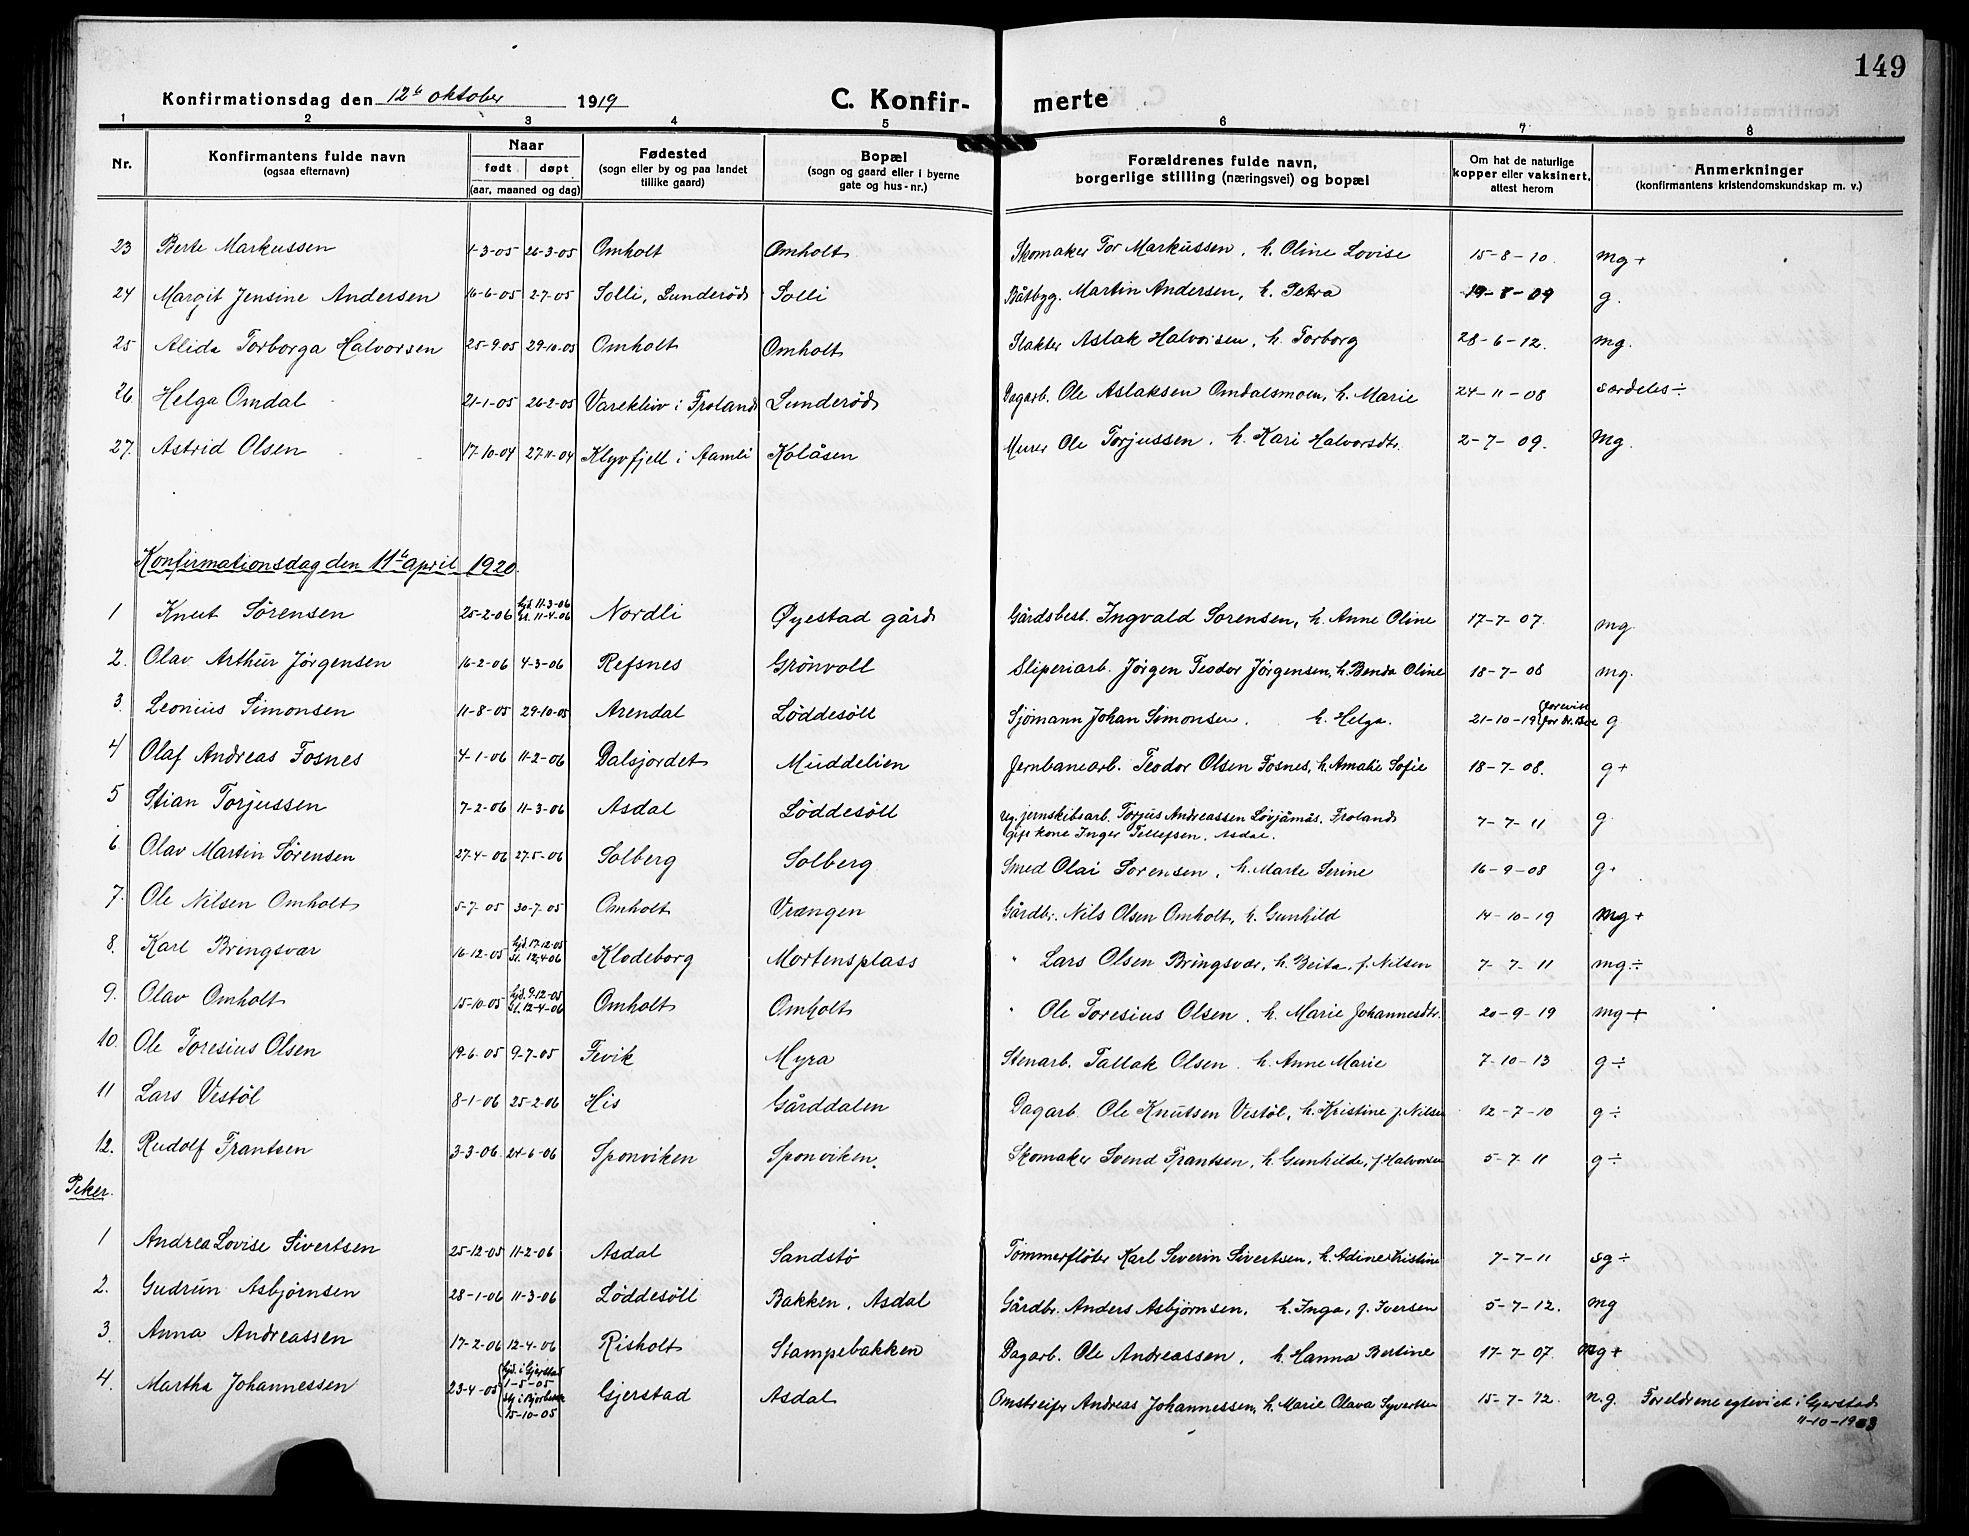 149
Konfirmationsdag den 12te oktober 1919 C. Konfirmerte
1 2 3 4 5 6 7 8
Nr. Konfirmantens fulde navn (ogsaa efternavn) Naar født døpt (aar, maaned og dag) Fødested (sogn eller by og paa landet tillike gaard) Bopæl (sogn og gaard eller i byerne gate og hus-nr.) Forældrenes fulde navn, borgerlige stilling (næringsvei) og bopæl Om hat de naturlige kopper eller vaksinert, attest herom Anmerkninger (konfirmantens kristendomskundskap m. v.)
23 Berte Markussen 1-3-05 26-3-05 Omholt Omholt Skomaker Tor Markussen, h. Oline Lovise 15-8-10 mg+
24 Margit Jensine Andersen 16-6-05 2-7-05 Solli, Lunderød Solli Båtbyg. Martin Andersen, h. Petra 19-8-09 g.
25 Alida Torborga Halvorsen 25-9-05 29-10-05 Omholt Omholt Slakter Aslak Halvorsen, h. Torborg 28-6-12. mg.
26 Helga Omdal 21-1-05 26-2-05 Varekliv i Froland Lunderød Dagarb. Ole Aslaksen Omdalsmoen, h. Marie 24-11-08 særdeles ÷
27. Astrid Olsen 17-10-04 27-11-04 Klyvfjell i Aamli Kolåsen Murer Ole Torjussen, h. Kari Halvorsdtr. 2-7-09. Mg.
Konfirmationsdag den 11te april 1920.
1 Knut Sørensen 25-2-06 hjd. 11-3-06 st. 11-4-06 Nordli Øyestad gård Gårdsbest. Ingvald Sørensen, h. Anne Oline 17-7-07. mg
2. Olav Arthur Jørgensen 16-2-06 4-3-06 Refsnes Grønvoll Sliperiarb. Jørgen Teodor Jørgensen, h. Benda Oline 18-7-08 mg.
3. Leonius Simonsen 11-8-05 29-10-05 Arendal Løddesøll Sjømann Johan Simonsen. h. Helga. 21-10-19 g
4 Olaf Andreas Fosnes 4-1-06 11-2-06 Dalsjordet Muddelien Jernbanearb. Teodor Olsen Fosnes, h. Amalie Sofie 18-7-08. g+
5 Stian Torjussen 7-2-06 11-3-06 Asdal Løddesøll jernskibsarb. Torjus Andreassen Løvjåmås, Froland gift kone Inger Tellefsen, Asdal. 7-7-11 g
6. Olav Martin Sørensen 27-4-06 27-5-06 Solberg Solberg Smed Olai Sørensen, h. Marte Serine 16-9-08 g+
7. Ole Nilsen Omholt 5-7-05 30-7-05 Omholt Vrængen Gårdbr. Nils Olsen Omholt, h. Gunhild 14-10-19 mg+
8. Karl Bringsvær 16-12-05 hjd. 17-12-05 st. 12-4-06 Klodeborg Mortensplass " Lars Olsen Bringsvær, h. Beita, f. Nilsen 7-7-11 mg÷
9. Olav Omholt 15-10-05 hjd. 9-12-05 st. 12-4-06 Omholt Omholt " Ole Toresius Olsen, h. Marie Johannesdtr. 20-9-19 mg+
10. Ole Toresius Olsen 19-6-05 9-7-05 Fevik Myra Stenarb. Tallak Olsen. h. Anne Marie 7-10-13 g÷
11 Lars Vestøl 8-1-06 25-2-06 His Gårddalen Dagarb. Ole Knutsen Vestøl, h. Kristine f. Nilsen 12-7-10 g÷
12. Rudolf Frantsen 3-3-06 24-6-06 Sponviken Sponviken. Skomaker Svend Frantsen, h. Gunhilde, f. Halvorsen 5-7-11 g÷
Piker.
1 Andrea Lovise Sivertsen 25-12-05 11-2-06 Asdal Sandstø Tømmerfløter Karl Severin Sivertsen, h. Adine Kristine 7-7-11 sg÷
2. Gudrun Asbjørnsen 28-1-06 11-3-06 Løddesøll Bakken, Asdal Gårdbr. Anders Asbjørnsen, h. Inga, f. Iversen 5-7-12. mg
3. Anna Andreassen 17-2-06 12-4-06 Risholt Stampebakken Dagarb. Ole Andreassen, h. Hanna Bertine 17-7-07. mg+
4. Martha Johannessen 23-4-05 hjd. i Gjerstad 1-5-05 15-10-05 Gjerstad Asdal Omstreifer Andreas Johannessen, h. Marie Olava Syvertsen 15-7-12. n.g. Foreldrene egteviet i Gjerstad 11-10-1903